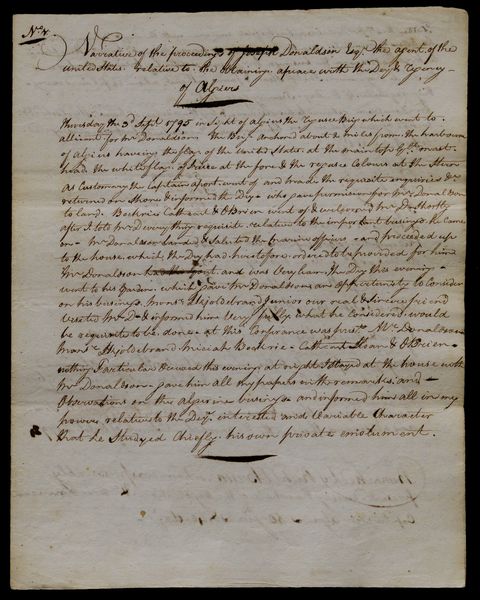 Narrative of the proceedings of Joseph Donaldson Esqr the agent of the
united States. relative to the obtaining apeace with the Dey & regency
of Algiers
Thursday the 3d Septr 1795 in Sight of algiers the ragusee Brig which went to
allicant for Mr Donaldson the Brig anchored about 2 miles from the harbour
of algiers haveing the flag of the United States. at the main top Gt mast
head the white flag of peace at the fore & the ragusee Colours at the Stern
as Customary the Captain aport. went of and made the requisite enquiries &c
returned on Shore & informed the Dey - who gave permission for Mr Donaldson
to land. Bachrie Cathcart & OBrien went of & welcomed Mr D shortly
after I told Mr D every thing requisite. relative to the important business he Came
on - Mr Donaldson landed & Saluted the marine officers - and proceeded up
to the house which the Dey had heretofore ordered to be provided for him
Mr Donaldson had the Gout and was Very lame. the Dey this evening
went to his Garden. which gave Mr Donaldson an oppertunity to Consider
on his business. monsr Skjoldebrand Junior our real & Sincere friend
Visited Mr D & informed him Very fully what he Considered would
be requisite to be done - at this Conferance was presnt Mr Donaldson
monsr Skjoldebrand Miciah Bachrie - Cathcart Sloan & OBrien -
nothing Particular Occured this evening at night I Stayed at the house with
Mr Donaldson - gave him all my papers with remarks. and
Observations on the algerine business and informed him all in my
power relative to the Deys. interested and Variable Character
that he Studyed Chiefly his own private emolument.